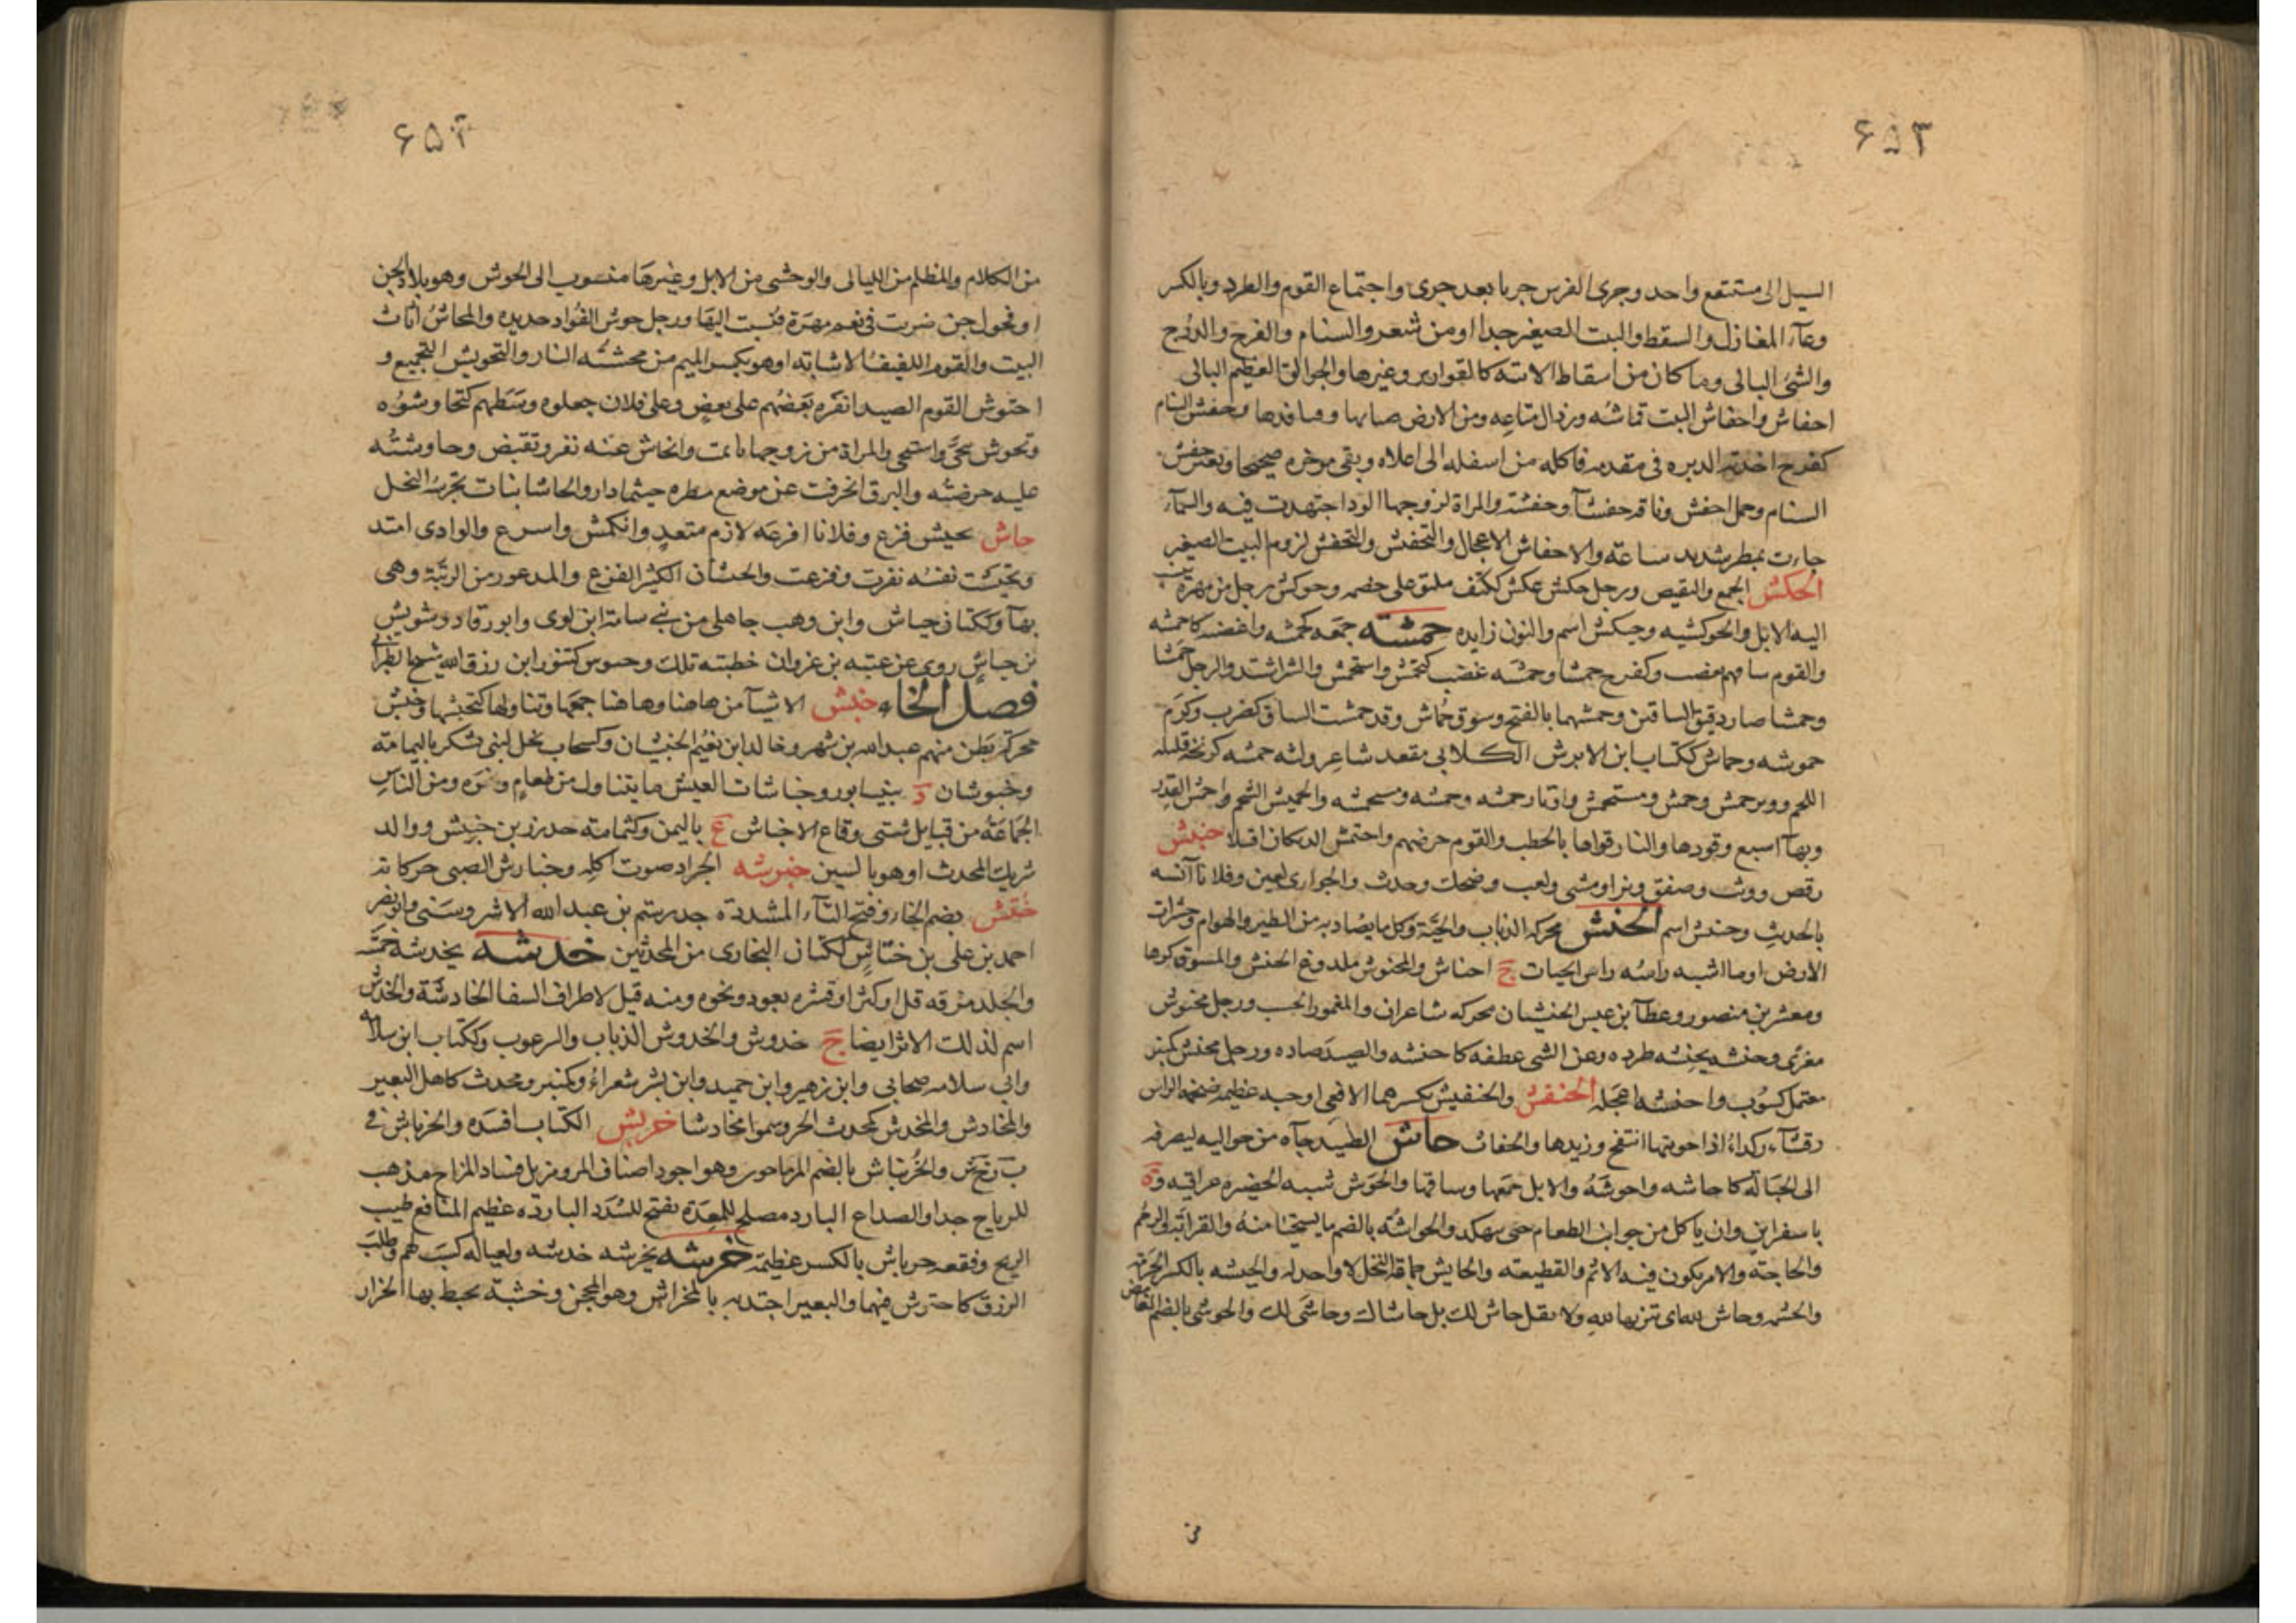 ۶۵۳
السيل الى مستنقع واحد وجرى الفرس جريا بعد جرى واجتماع القوم والطرد وبالكسر
وعآء المغازل والسقط والبيت الصغير جدا او من شعر والسنام والفرج والدرج
والشئ البالى وما كان من اسقاط الانية كالقوارير وغيرها والجوالق العظيم البالى
احفاش واحفاش البيت قماشه ورذال متاعه ومن الارض ضبابها وقنافذها وحفش السنام
كفرح اخذته الدبره فى مقدمه فاكله من اسفله الى اعلاه وبقى موخره صحيحا وبعير حفش
السنام وجمل احفش وناقة حفشآ وحفشة والمراة لزوجها الود اجتهدت فيه والسمآء
جاءت بمطر شديد ساعة والاحفاش الاعجال والتحفيش والتحفش لزوم البيت الصغير
الحكش الجمع والتقبض ورجل حكش عكش ككتف ملتو على خصمه وحوكش رجل من مهرة
اليه الابل والحوكشيه وحبكش اسم والنون زايده حمشه جمعه كحمشه واغضبه كاحمشه
والقوم ساقهم بغضب وكفرح حمشا وحمشه غضب كتحمش واستحمش والشر اشتد والرجل حمشا
وحمشا صار دقيق الساقين وحمشهما بالفتح وسوق حماش وقد حمشت الساق كضرب وكرم
حموشه وحماش ككتاب ابن الابرش الكلابى مقعد شاعر ولثه حمشه كزنخة قليلة
اللحم ووتر حمش وحمش ومستحمش واوتار حمشه وحمشه ومستحمشه والحميش الشحم واحمش القدر
وبها اسبع وقودها والنار قواها بالحطب والقوم حرضهم واحتمش الديكان اقتلا حنبش
رقص ووثب وصفق ونزا ومشى ولعب وضحك وحدث والجوارى لعبن وفلانا آنسه
بالحديث وحنبش اسم الحنش محركه الذباب والحية وكل ما يصاد به من الطير والهوام وحشرات
الارض او ما اشبه راسه راس الحيات ج احناش والمحنوش ملدوغ الحنش والمسوق كرها
ومعشر بن منصور وعطآ بن عبس الحنشيان محركه شاعران والمغمور الحسب ورجل محنوش
مغرى وحنشه يحنشه طرده وعن الشى عطفه كاحنشه والصيد صاده ورجل محنش كمنبر
معتمل كسوب واحنشه اعجله الحنفش والحنفيش بكسرهما الافعى او حيه عظيمه ضخمة الراس
رقشآء كدراء اذا حويتها انتفخ وريدها والحفاث حاش الصيد جآءه من حواليه ليصرفه
الى الحبالة كاحاشه واحوشه والابل جمعها وساقها والحوش شبه الحضيره عراقيه وة
باسفراين وان ياكل من جوانب الطعام حتى ينهكه والحواشه بالضم ما يستحيا منه والقرابة والرحم
والحاجة والامر يكون فيه الاثم والقطيعة والحايش جماعة النخل لا واحد له والحيشه بالكسر الحرمة
والحشمه وحاش لله اى تنزيها لله ولا تقل حاش لك بل حاشاك وحاشى لك والحوشى بالضم الغامض
من
۶۵۴
من الكلام والمظلم من الليالى والوحشى من الابل وغيرها منسوب الى الحوش وهو بلاد الجن
او فحول جن ضربت فى نعم مهرة فنسبت اليها ورجل حوش الفؤاد حديده والمحاش اثاث
البيت والقوم اللفيف الاشابة او هو بكسر الميم من محشته النار والتحويش التجميع و
احتوش القوم الصيد انفره بعضهم على بعض وعلى فلان جعلوه وسطهم كتحاوشوه
وتحوش تنحى واستحى والمراة من زوجها تايمت وانحاش عنه نفر وتقبض وحاوشته
عليه حرضته والبرق انحرفت عن موضع مطره حيثما دار والحاشا نبات تجرسه النحل
حاش يحيش فزع وفلانا افزعه لازم متعد وانكمش واسرع والوادى امتد
وتحيشت نفسه نفرت وفزعت والحيشان الكثير الفزع والمذعور من الريبة وهى
بهآ وككتان حياش وابن وهب جاهلى من بنى سامة ابن لوى وابو رقاد وشويش
بن حياش روى عن عتبه بن غزوان خطبته تلك وحيوش كتنور ابن رزق الله شيخ الطبرانى
فصل الخاء خبش الاشيآ من هاهنا وهاهنا جمعها وتناولها كتخبشها وخبش
محركة بطن منهم عبد الله بن شهر وخالد ابن نعيم الخبشيان وكسحاب نخل لبنى يشكر باليمامة
وخبوشان د بنيسابور وخباشات العيش ما يتناول من طعام ونحوه ومن الناس
الجماعة من قبايل شتى وقاع الاخباش ع باليمن وكثمامة جد زر بن حبيش ووالد
شريك المحدث او هو بالسين خبرشه الجراد صوت اكله وخبارش الصبى حركاته
ختش بضم الخاء وفتح التآء المشددة جد رستم بن عبد الله الاشروسنى وابو نصر
احمد بن على بن ختاش ككتان البخارى من المحدثين خدشه يخدشه خمشه
والجلد مزقه قل او كثر او قشره بعود ونحوه ومنه قيل لاطراف السفا الخادشة والخدش
اسم لذلك الاثر ايضا ج خدوش والخدوش الذباب والبرغوث وككتاب ابن سلامه
وابى سلامه صحابى وابن زهير وابن حميد وابن بشر شعراء وكمنبر ومحدث كاهل البعير
والمخادش والمخدش كمحدث الهر وسموا مخادشا خربش الكتاب افسده والخرباش فى
ب ر خ ش والخرنباش بالضم المرماحور وهو اجود اصناف المرو مزيل فساد المزاج مذهب
للرياح جدا والصداع البارد مصلح للمعدة مفتح للسدد الباردة عظيم المنافع طيب
الريح وفقعة خرباش بالكسر عظيمة خرشه يخرشه خدشه ولعياله كسب لهم وطلب
الرزق كاخترش فيهما والبعير اجتذبه بالمخراش وهو المحجن وخشبة يخط بها الخراز